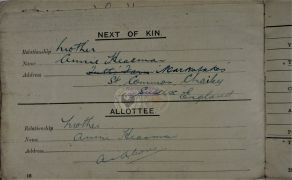 NEXT OF KIN.
Relationship Mother
Name Annie Heasman
Address Markstakes
St Common Chailey
Sussex England
ALLOTTEE.
Relationship Mother
Name Annie Heasman
Address As Above
16